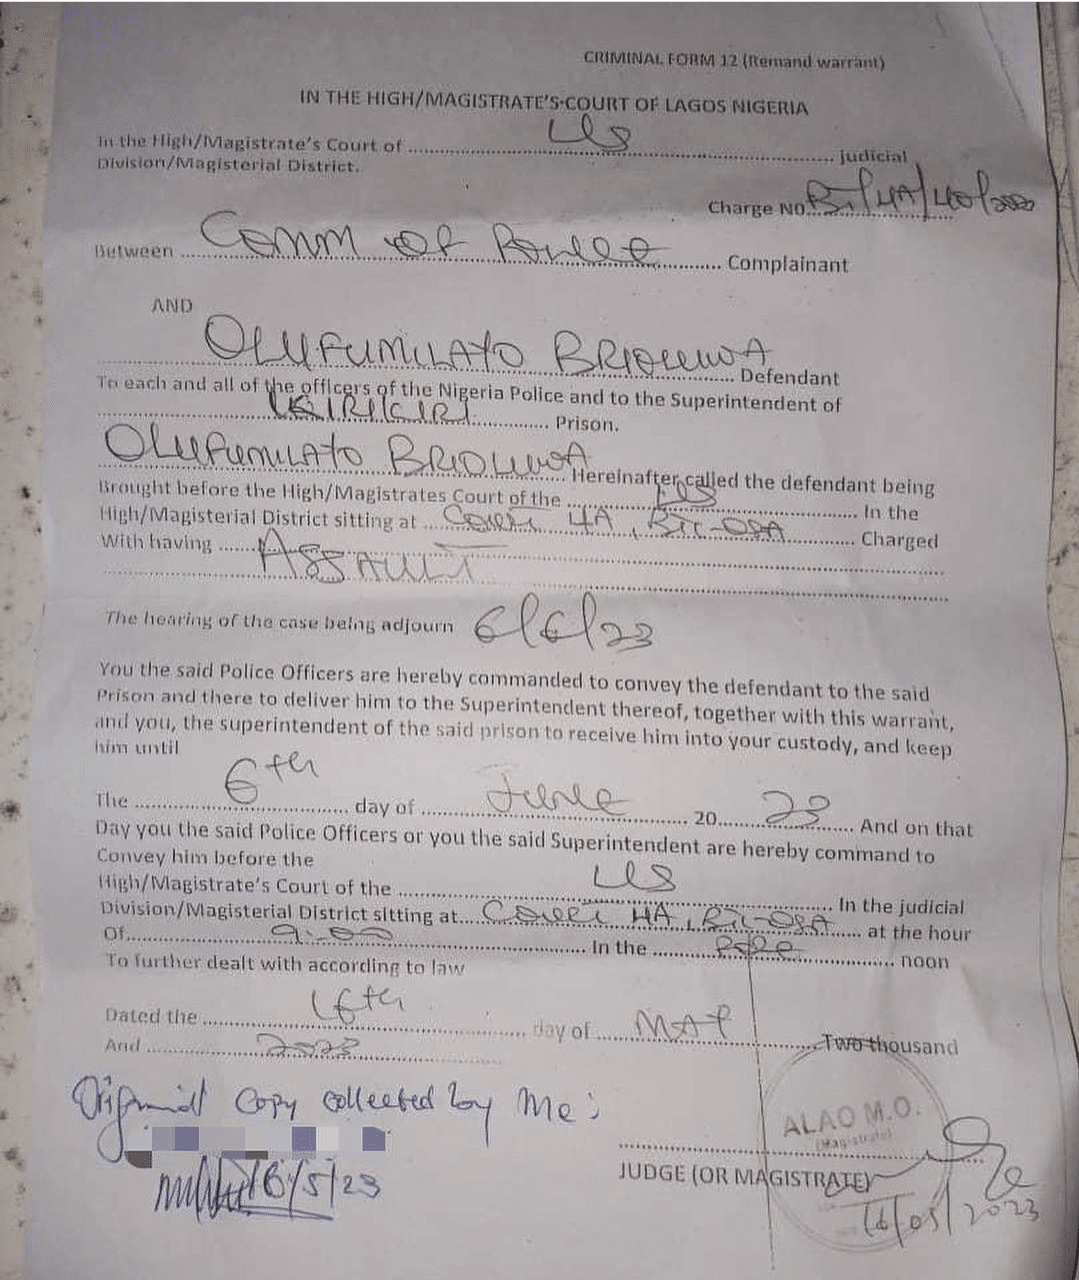 CRIMINAL FORM 12 (Remand warrant)
IN THE HIGH/MAGISTRATE'S COURT OF LAGOS NIGERIA
In the High/Magistrate's Court of ........ LLS ........ judicial
Division/Magisterial District.
Charge NO.
Between ........ Comm of Police ........ Complainant
AND
OLUFUMILAYO BRIOLUWA ........ Defendant
To each and all of the officers of the Nigeria Police and to the Superintendent of
KIRIKIRI ........ Prison.
OLUFUMILAYO BRIOLUWA ........ Hereinafter called the defendant being
Brought before the High/Magistrates Court of the ........ LLS ........ In the
High/Magisterial District sitting at ........ Court 4A, ........ Charged
With having ........ ASSAULT
The hearing of the case being adjourn 6/6/23
You the said Police Officers are hereby commanded to convey the defendant to the said
Prison and there to deliver him to the Superintendent thereof, together with this warrant,
and you, the superintendent of the said prison to receive him into your custody, and keep
him until
The ........ 6th ........ day of ........ June ........ 20 ........ 23 ........ And on that
Day you the said Police Officers or you the said Superintendent are hereby command to
Convey him before the
High/Magistrate's Court of the ........ LLS ........ In the judicial
Division/Magisterial District sitting at ........ Court 4A, ........ at the hour
Of ........ 9:00 ........ In the ........ noon
To further dealt with according to law
Dated the ........ 16th ........ day of ........ MAY ........ Two thousand
And ........ 2023
Original copy collected by Me:
16/5/23
ALAO M.O.
(Magistrate)
JUDGE (OR MAGISTRATE)
16/05/2023